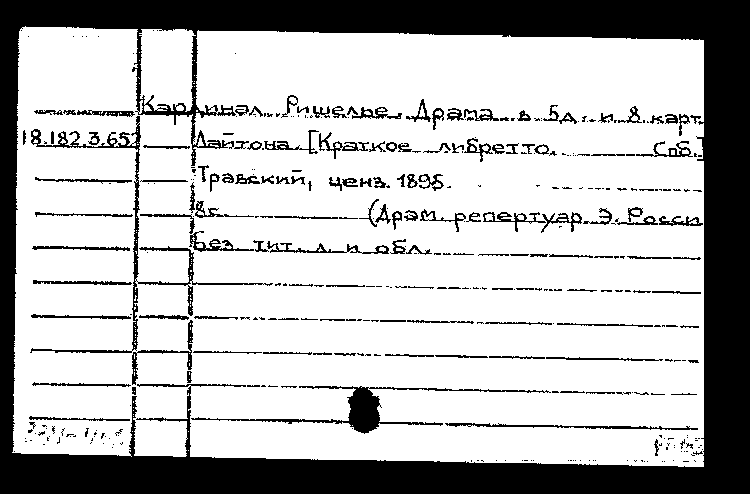 Кардинал Ришелье. Драма в 5д. и 8 карт
18.182.3.652 Лайтона. [Краткое либретто. Спб.]
Травский, ценз. 1895.
8с. (Драм. репертуар Э. Росси
Без тит. л. и обл.